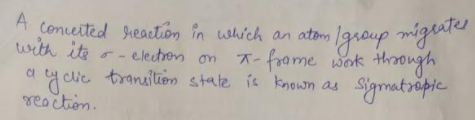 A concerted reaction in which an atom/group migrates
with its σ-electron on π-frame work through
a cyclic transition state is known as Sigmatropic
reaction.